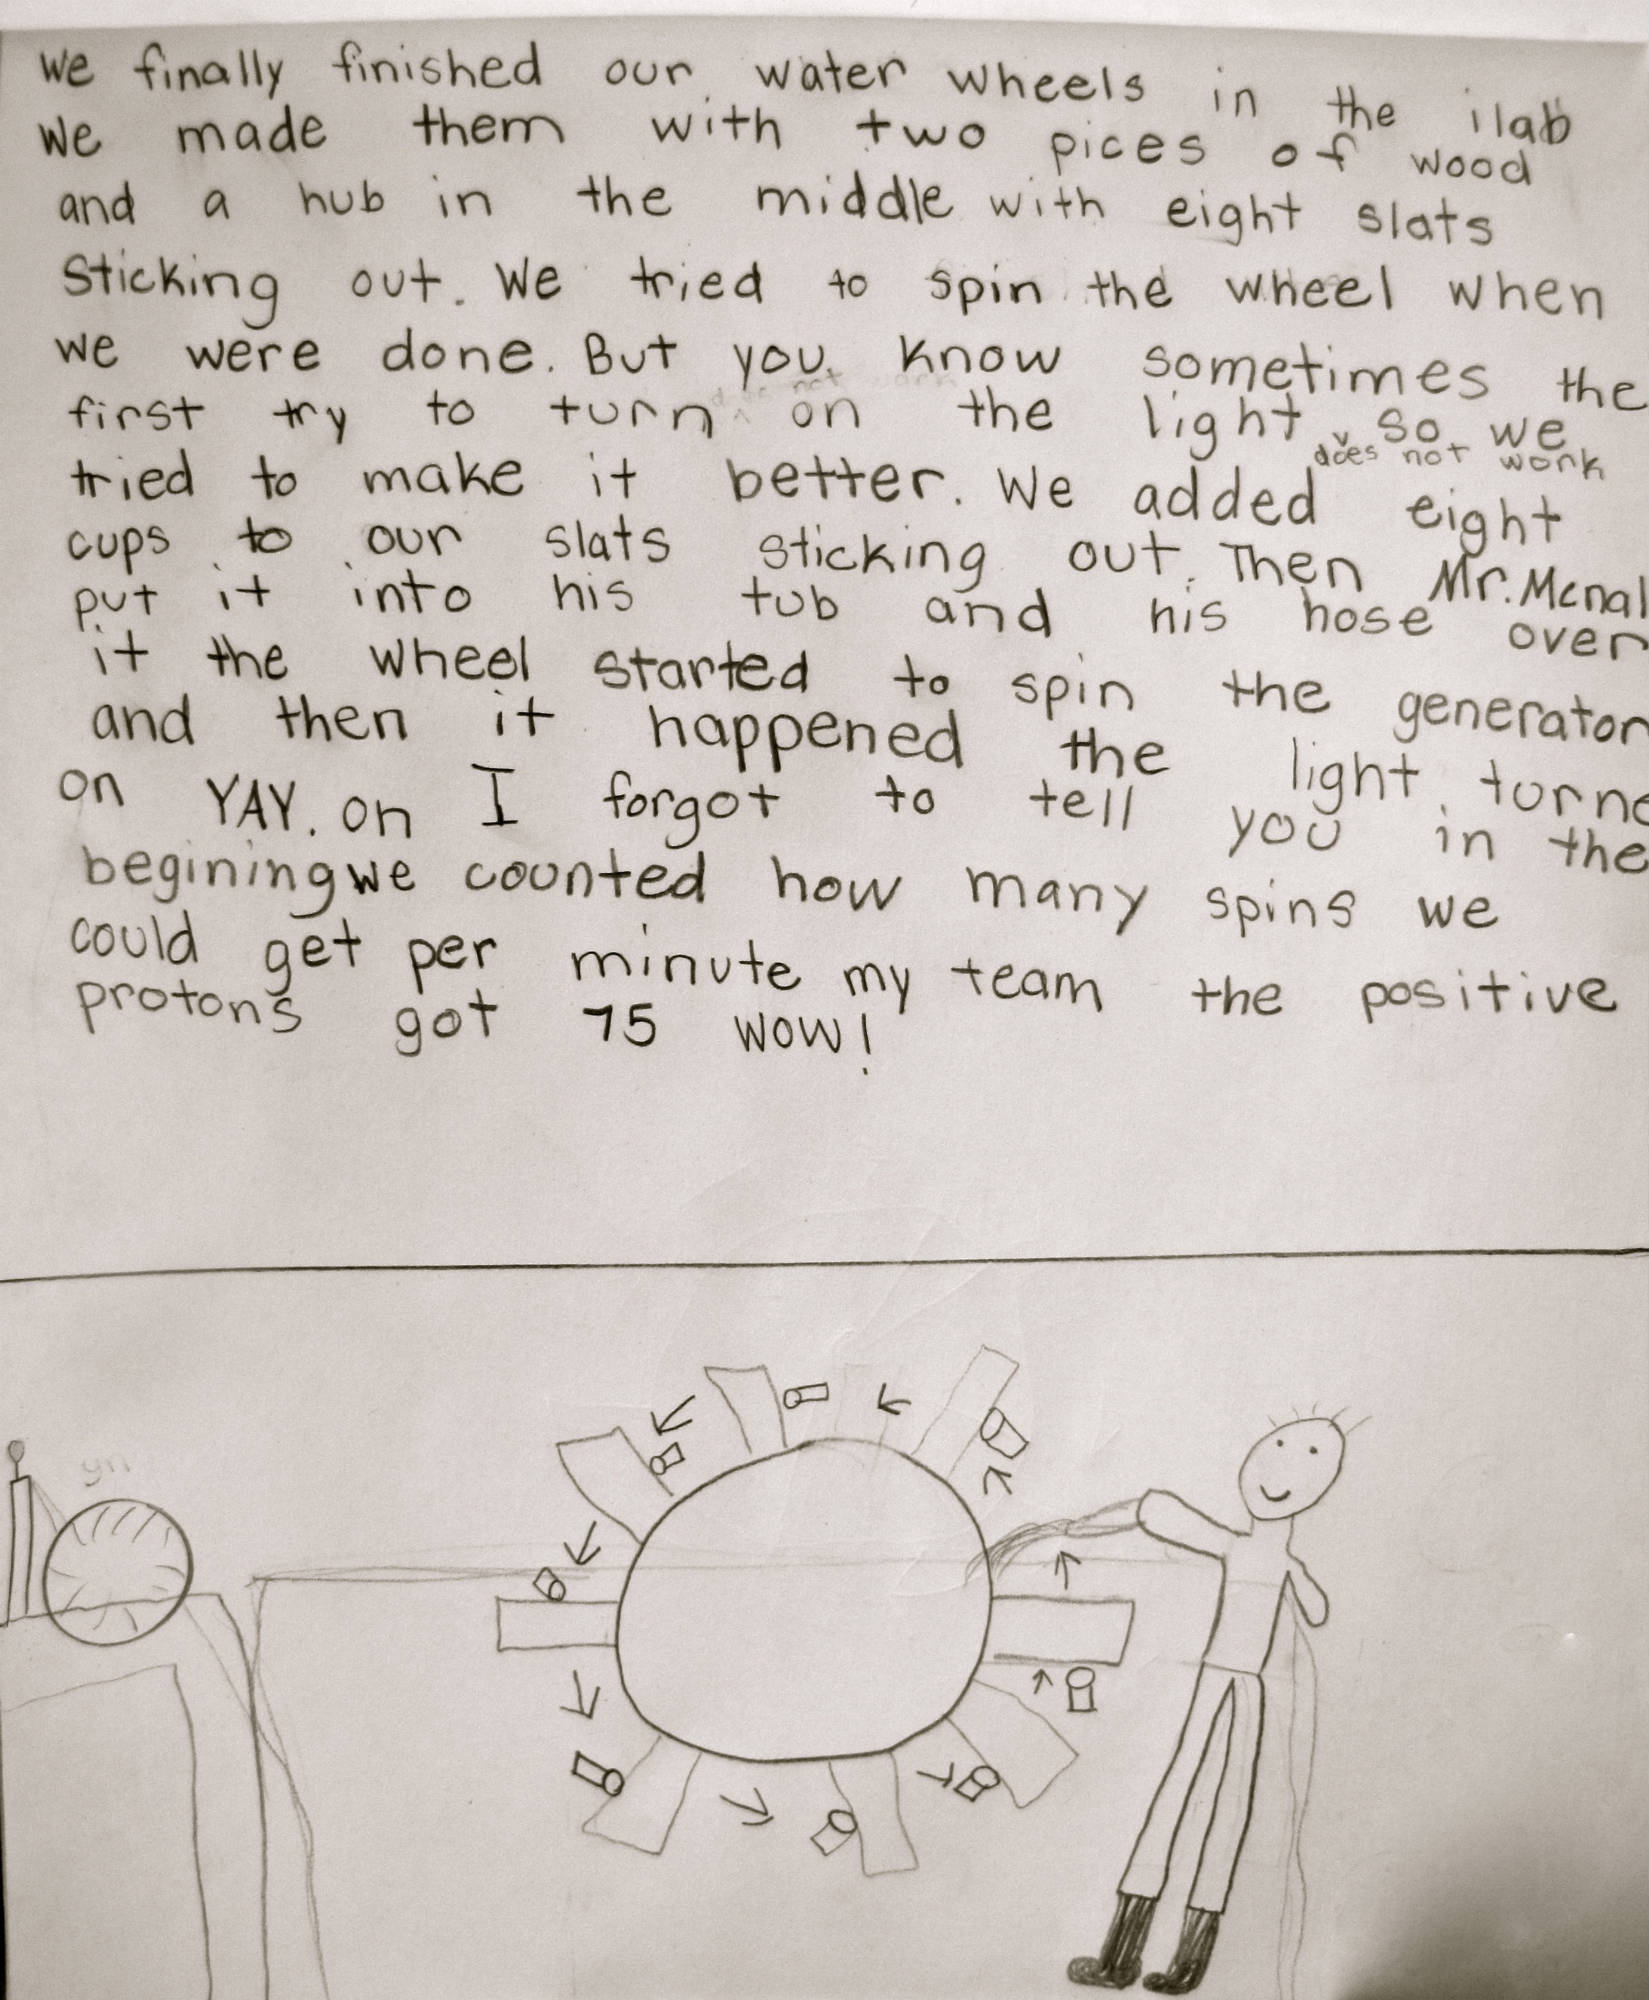 We finally finished our water wheels in the ilab
We made them with two pices of wood
and a hub in the middle with eight slats
Sticking out. We tried to spin the wheel when
we were done. But you know sometimes the
first try to turn on the light so we
does not work
tried to make it better. We added eight
cups to our slats sticking out. Then Mr. Mcnal
put it into his tub and his hose over
it the wheel started to spin the generator
and then it happened the light turne
on YAY. on I forgot to tell you in the
begining we counted how many spins we
could get per minute my team the positive
protons got 75 wow!